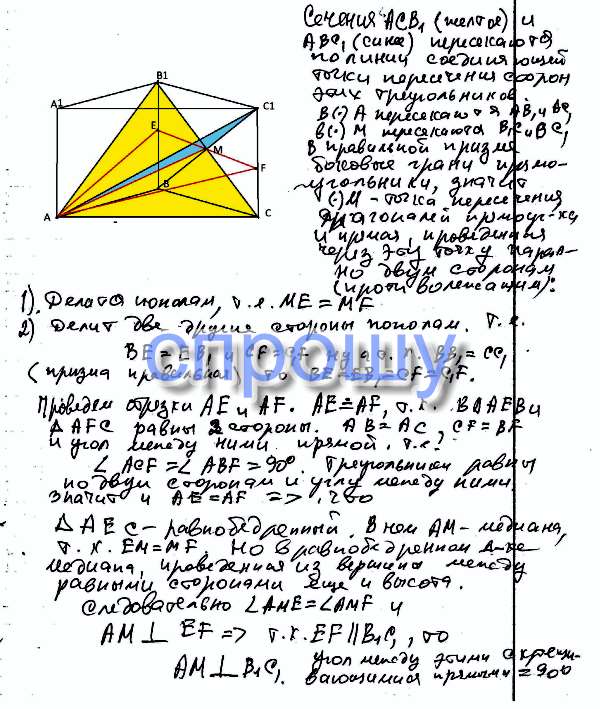 Сечения ACB₁ (желтое) и
ABC₁ (синее) пересекаются
по линии соединяющей
точки пересечения сторон
этих треугольников.
В (·) A пересекаются AB₁ и AC₁
в (·) M пересекаются B₁C и BC₁
В правильной призме
боковые грани прямо-
угольники, значит
(·) M - точка пересечения
диагоналей прямоуг-ка
и прямая, проведенная
через эту точку парал-
но двум сторонам
(противолежащим):
B1
A1
C1
E
M
F
B
A
C
1). Делится пополам, т.е. ME = MF
2) Делит две другие стороны пополам. т.е.
BE = EB₁ и CF = C₁F ну а т.к. BB₁ = CC₁
(призма правильная) то BE = EB₁ = CF = C₁F.
спрошу
Проведем отрезки AE и AF. AE = AF, т.к. в ΔAEB и
ΔAFC равны 2 стороны. AB = AC, CF = BF
и угол между ними прямой. т.е.
∠ACF = ∠ABF = 90°. Треугольники равны
по двум сторонам и углу между ними
значит и AE = AF =>
ΔAEC - равнобедренный. В нем AM - медиана,
т.к. EM = MF. Но в равнобедренном Δ-ке
медиана, проведенная из вершины между
равными сторонами еще и высота.
Следовательно ∠AME = ∠AMF и
AM ⊥ EF => т.к. EF ∥ B₁C₁, то
AM ⊥ B₁C₁. угол между этими скрещи-
вающимися прямыми = 90°